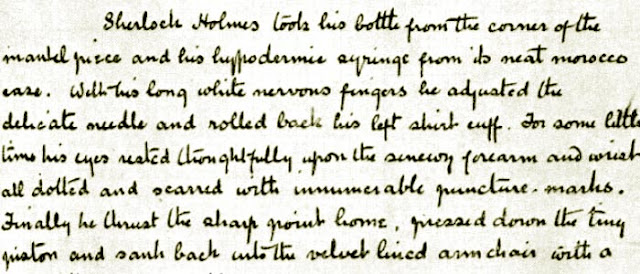 Sherlock Holmes took his bottle from the corner of the
mantel piece and his hypodermic syringe from its neat morocco
case. With his long white nervous fingers he adjusted the
delicate needle and rolled back his left shirt cuff. For some little
time his eyes rested thoughtfully upon the sinewy forearm and wrist
all dotted and scarred with innumerable puncture-marks.
Finally he thrust the sharp point home, pressed down the tiny
piston and sank back into the velvet lined armchair with a